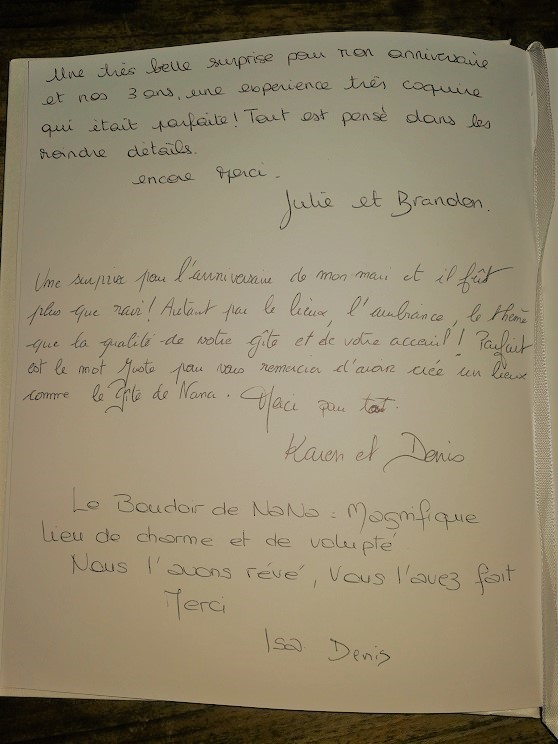 Une très belle surprise pour mon anniversaire
et nos 3 ans, une experience très coquine
qui était parfaite! Tout est pensé dans les
moindre détails.
encore Merci.
Julie et Brandon.
Une surprise pour l'anniversaire de mon mari et il fût
plus que ravi! Autant par le lieux, l'ambiance, le thème
que la qualité de votre gîte et de votre accueil! Parfait
est le mot juste pour vous remercier d'avoir créé un lieux
comme le Gîte de Nana. Merci pour tout.
Karen et Denis
Le Boudoir de NaNa : Magnifique
lieu de charme et de volupté
Nous l'avons rêvé, Vous l'avez fait
Merci
Isa Denis